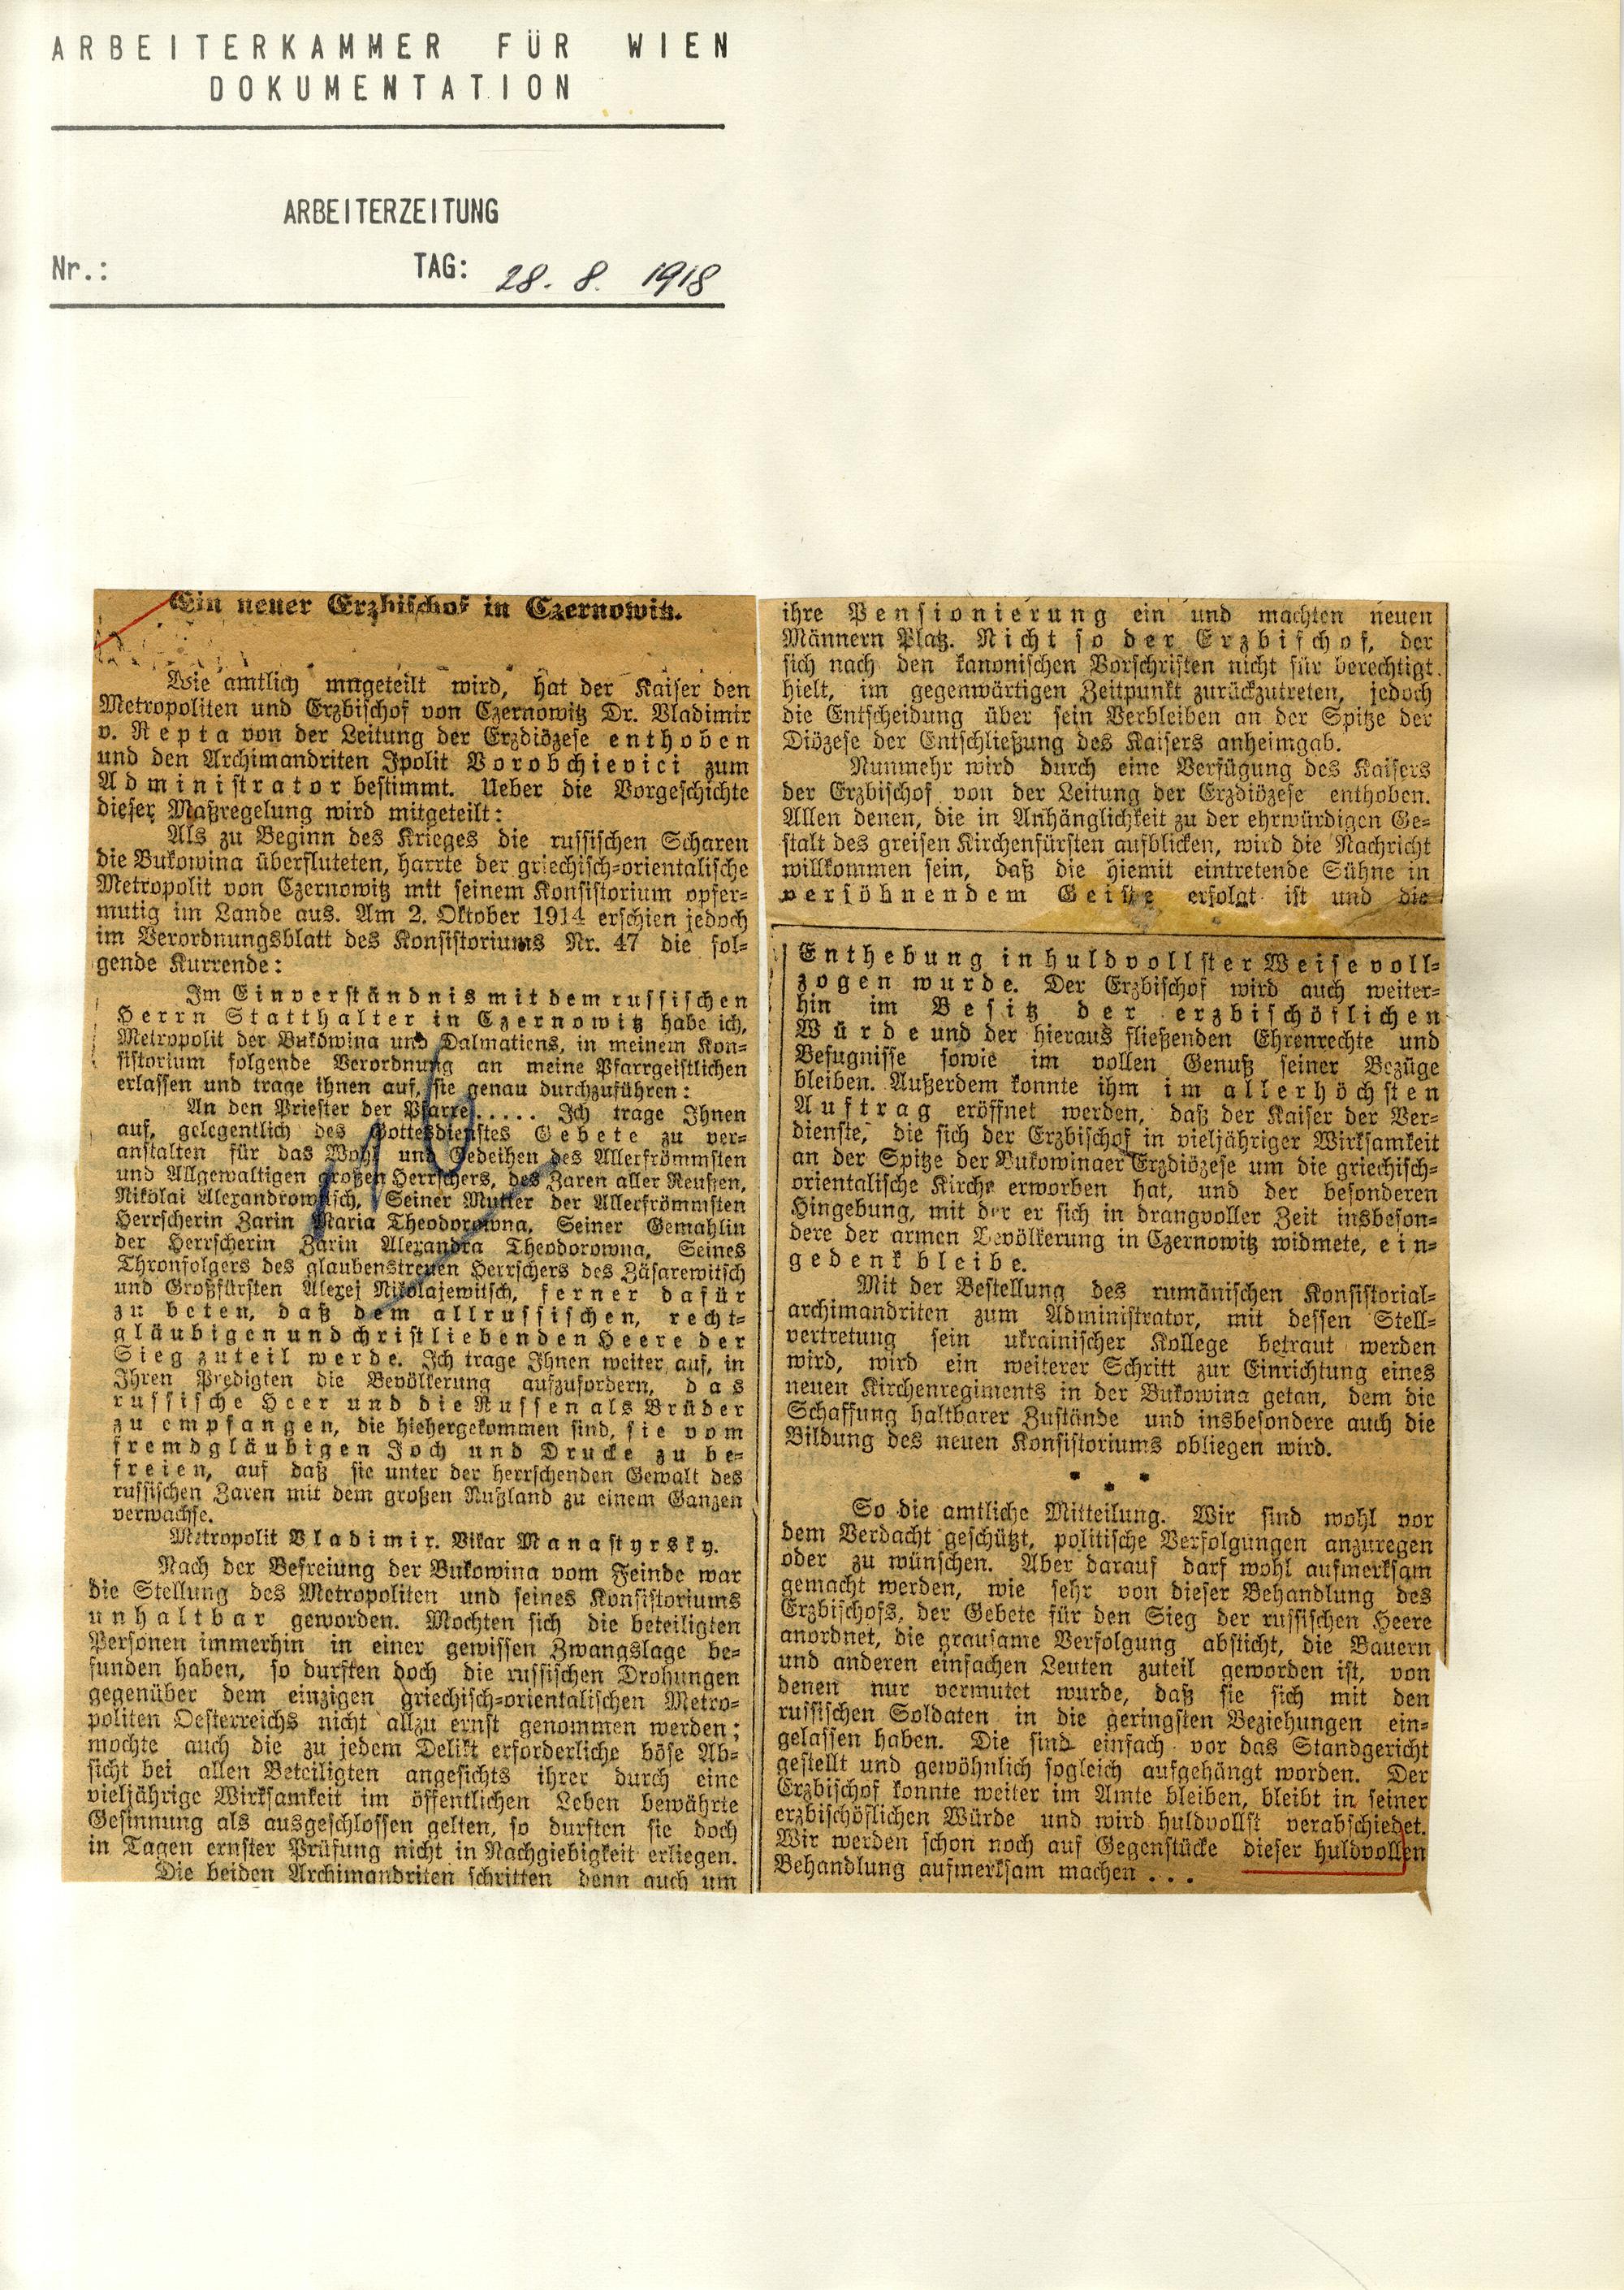 ARBEITERKAMMER FÜR WIEN
DOKUMENTATION
ARBEITERZEITUNG
Nr.: TAG: 28. 8. 1918
Ein neuer Erzbischof in Czernowitz.
Wie amtlich mitgeteilt wird, hat der Kaiser den
Metropoliten und Erzbischof von Czernowitz Dr. Vladimir
v. Repta von der Leitung der Erzdiözese enthoben
und den Archimandriten Ipolit Vorobchievici zum
Administrator bestimmt. Ueber die Vorgeschichte
dieser Maßregelung wird mitgeteilt:
Als zu Beginn des Krieges die russischen Scharen
die Bukowina überfluteten, harrte der griechisch-orientalische
Metropolit von Czernowitz mit seinem Konsistorium opfer-
mutig im Lande aus. Am 2. Oktober 1914 erschien jedoch
im Verordnungsblatt des Konsistoriums Nr. 47 die fol-
gende Kurrende:
Im Einverständnis mit dem russischen
Herrn Statthalter in Czernowitz habe ich,
Metropolit der Bukowina und Dalmatiens, in meinem Kon-
sistorium folgende Verordnung an meine Pfarrgeistlichen
erlassen und trage ihnen auf, sie genau durchzuführen:
An den Priester der Pfarre ..... Ich trage Ihnen
auf, gelegentlich des Gottesdienstes Gebete zu ver-
anstalten für das Wohl und Gedeihen des Allerfrömmsten
und Allgewaltigen großen Herrschers, des Zaren aller Reußen,
Nikolai Alexandrowitsch, Seiner Mutter der Allerfrömmsten
Herrscherin Zarin Maria Theodorowna, Seiner Gemahlin
der Herrscherin Zarin Alexandra Theodorowna, Seines
Thronfolgers des glaubenstreuen Herrschers des Zäsarewitsch
und Großfürsten Alexej Nikolajewitsch, ferner dafür
zu beten, daß dem allrussischen, recht-
gläubigen und christliebenden Heere der
Sieg zuteil werde. Ich trage Ihnen weiter auf, in
Ihren Predigten die Bevölkerung aufzufordern, das
russische Heer und die Russen als Brüder
zu empfangen, die hiehergekommen sind, sie vom
fremdgläubigen Joch und Drucke zu be-
freien, auf daß sie unter der herrschenden Gewalt des
russischen Zaren mit dem großen Rußland zu einem Ganzen
verwachse.
Metropolit Vladimir. Vikar Manastyrsky.
Nach der Befreiung der Bukowina vom Feinde war
die Stellung des Metropoliten und seines Konsistoriums
unhaltbar geworden. Mochten sich die beteiligten
Personen immerhin in einer gewissen Zwangslage be-
funden haben, so durften doch die russischen Drohungen
gegenüber dem einzigen griechisch-orientalischen Metro-
politen Oesterreichs nicht allzu ernst genommen werden;
mochte auch die zu jedem Delikt erforderliche böse Ab-
sicht bei allen Beteiligten angesichts ihrer durch eine
vieljährige Wirksamkeit im öffentlichen Leben bewährte
Gesinnung als ausgeschlossen gelten, so durften sie doch
in Tagen ernster Prüfung nicht in Nachgiebigkeit erliegen.
Die beiden Archimandriten schritten denn auch um
ihre Pensionierung ein und machten neuen
Männern Platz. Nicht so der Erzbischof, der
sich nach den kanonischen Vorschriften nicht für berechtigt
hielt, im gegenwärtigen Zeitpunkt zurückzutreten, jedoch
die Entscheidung über sein Verbleiben an der Spitze der
Diözese der Entschließung des Kaisers anheimgab.
Nunmehr wird durch eine Verfügung des Kaisers
der Erzbischof von der Leitung der Erzdiözese enthoben.
Allen denen, die in Anhänglichkeit zu der ehrwürdigen Ge-
stalt des greisen Kirchenfürsten aufblicken, wird die Nachricht
willkommen sein, daß die hiemit eintretende Sühne in
versöhnendem Geiste erfolgt ist und die
Enthebung in huldvollster Weise voll-
zogen wurde. Der Erzbischof wird auch weiter-
hin im Besitz der erzbischöflichen
Würde und der hieraus fließenden Ehrenrechte und
Befugnisse sowie im vollen Genuß seiner Bezüge
bleiben. Außerdem konnte ihm im allerhöchsten
Auftrag eröffnet werden, daß der Kaiser der Ver-
dienste, die sich der Erzbischof in vieljähriger Wirksamkeit
an der Spitze der Bukowinaer Erzdiözese um die griechisch-
orientalische Kirche erworben hat, und der besonderen
Hingebung, mit der er sich in drangvoller Zeit insbeson-
dere der armen Bevölkerung in Czernowitz widmete, ein-
gedenk bleibe.
Mit der Bestellung des rumänischen Konsistorial-
archimandriten zum Administrator, mit dessen Stell-
vertretung sein ukrainischer Kollege betraut werden
wird, wird ein weiterer Schritt zur Einrichtung eines
neuen Kirchenregiments in der Bukowina getan, dem die
Schaffung haltbarer Zustände und insbesondere auch die
Bildung des neuen Konsistoriums obliegen wird.
* * *
So die amtliche Mitteilung. Wir sind wohl vor
dem Verdacht geschützt, politische Verfolgungen anzuregen
oder zu wünschen. Aber darauf darf wohl aufmerksam
gemacht werden, wie sehr von dieser Behandlung des
Erzbischofs, der Gebete für den Sieg der russischen Heere
anordnet, die grausame Verfolgung absticht, die Bauern
und anderen einfachen Leuten zuteil geworden ist, von
denen nur vermutet wurde, daß sie sich mit den
russischen Soldaten in die geringsten Beziehungen ein-
gelassen haben. Die sind einfach vor das Standgericht
gestellt und gewöhnlich sogleich aufgehängt worden. Der
Erzbischof konnte weiter im Amte bleiben, bleibt in seiner
erzbischöflichen Würde und wird huldvollst verabschiedet.
Wir werden schon noch auf Gegenstücke dieser huldvollen
Behandlung aufmerksam machen ...